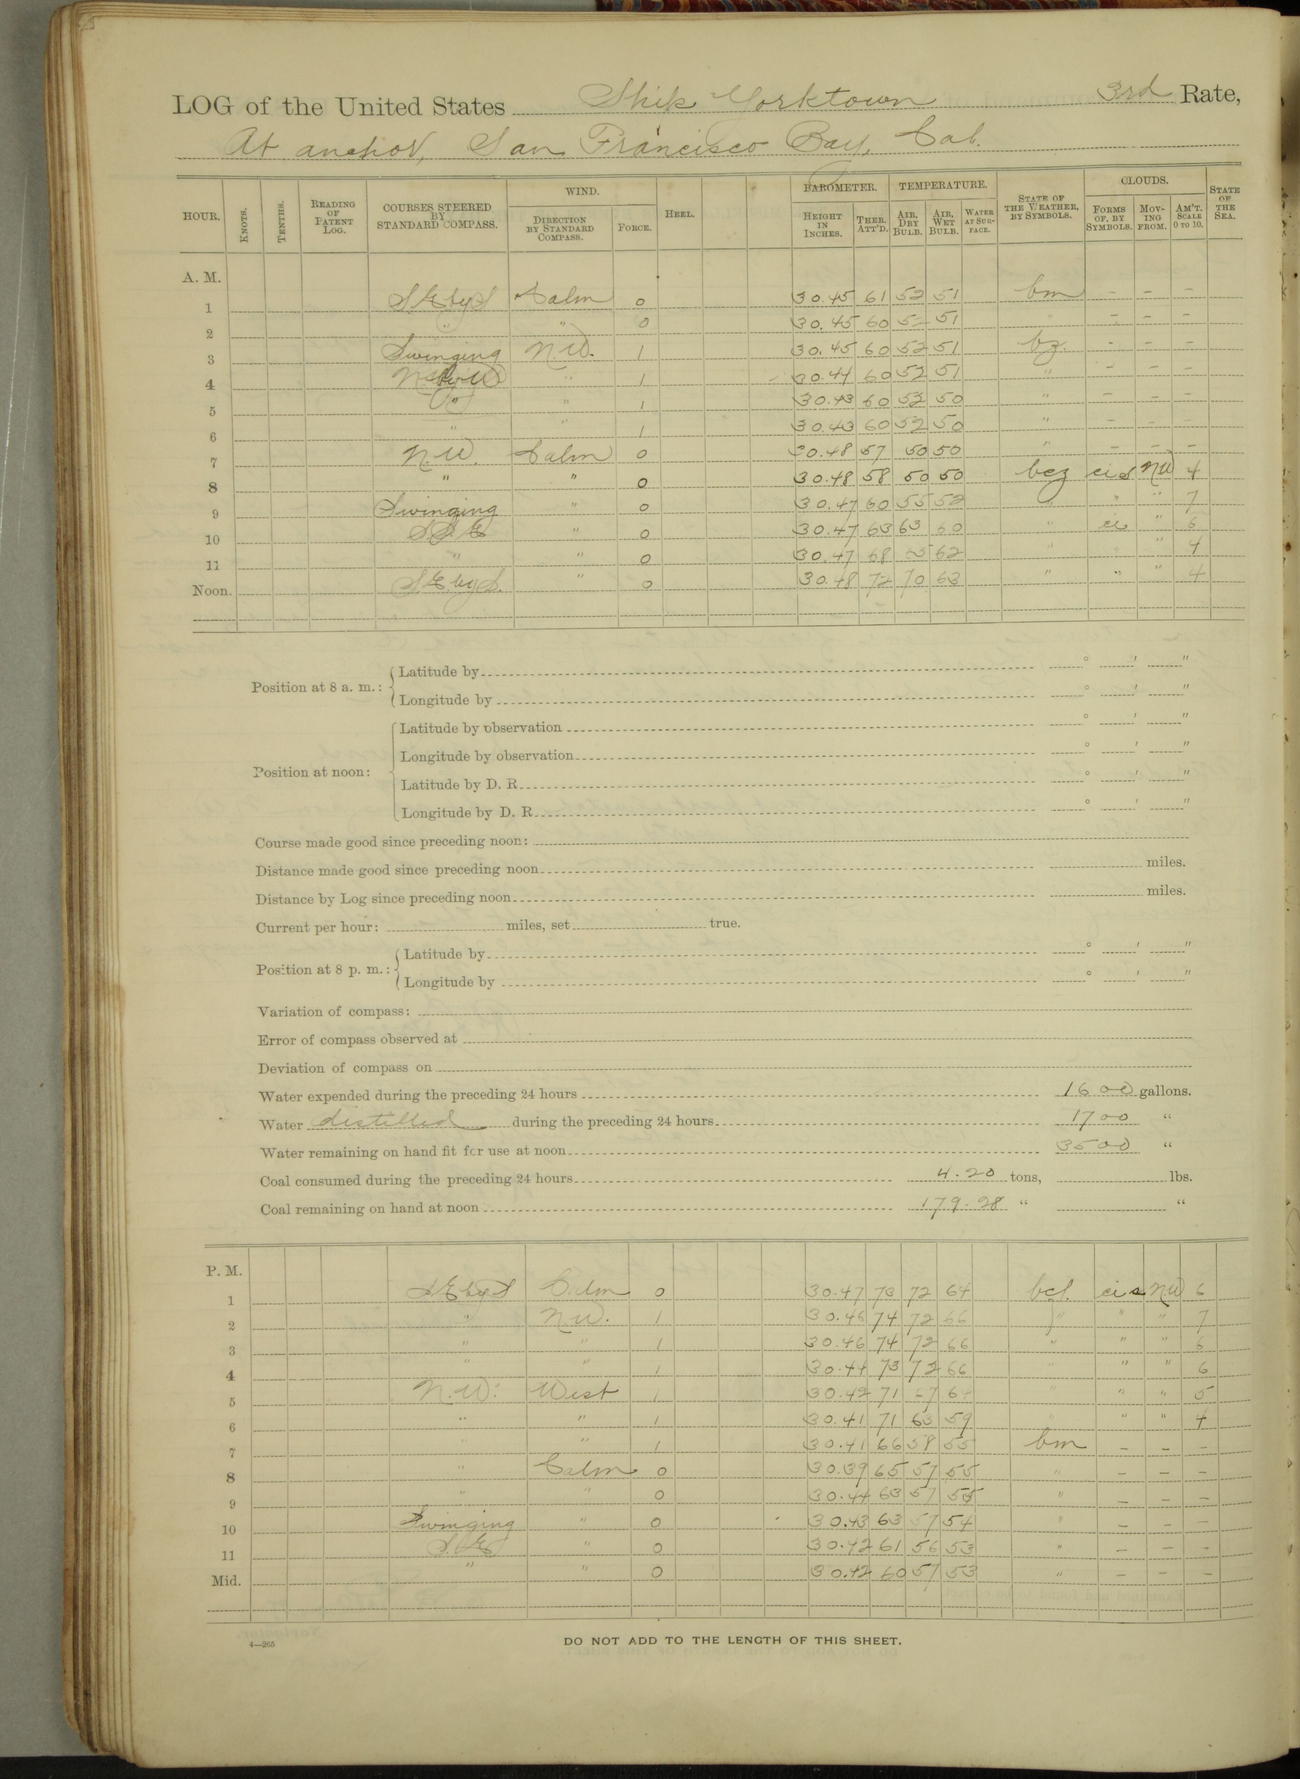 LOG of the United States Ship Yorktown 3rd Rate,
At anchor, San Francisco Bay, Cal.
HOUR. KNOTS. TENTHS. READING OF PATENT LOG. COURSES STEERED BY STANDARD COMPASS. WIND. DIRECTION BY STANDARD COMPASS. FORCE. HEEL. BAROMETER. HEIGHT IN INCHES. THER. ATT'D. TEMPERATURE. AIR, DRY BULB. AIR, WET BULB. WATER AT SURFACE. STATE OF THE WEATHER, BY SYMBOLS. CLOUDS. FORMS OF, BY SYMBOLS. MOVING FROM. AM'T. SCALE 0 TO 10. STATE OF THE SEA.
A. M.
1 S.E by S Calm 0 30.45 61 52 51 bm – – –
2 " " 0 30.45 60 52 51 – – –
3 Swinging N.W. 1 30.45 60 52 51 bz. – – –
4 " 1 30.44 60 52 51 " – – –
5 " 1 30.43 60 52 50 " – – –
6 " " 1 30.43 60 52 50 " – – –
7 N.W. Calm 0 30.48 57 50 50 " – – –
8 " " 0 30.48 58 50 50 bcz ci s NW 4
9 Swinging " 0 30.47 60 55 52 " " " 7
10 " 0 30.47 63 63 60 " ci " 6
11 " " 0 30.47 68 62 " 4
Noon. S.E by S. " 0 30.48 72 70 63 " " " 4
Position at 8 a. m.: Latitude by ° ′ ″
Longitude by ° ′ ″
Position at noon: Latitude by observation ° ′ ″
Longitude by observation ° ′ ″
Latitude by D. R. ° ′ ″
Longitude by D. R. ° ′ ″
Course made good since preceding noon:
Distance made good since preceding noon miles.
Distance by Log since preceding noon miles.
Current per hour: miles, set true.
Position at 8 p. m.: Latitude by ° ′ ″
Longitude by ° ′ ″
Variation of compass:
Error of compass observed at
Deviation of compass on
Water expended during the preceding 24 hours 1600 gallons.
Water distilled during the preceding 24 hours 1700 “
Water remaining on hand fit for use at noon 3500 “
Coal consumed during the preceding 24 hours 4.20 tons, lbs.
Coal remaining on hand at noon 179.28 “ “
P. M.
1 S.E by S Calm 0 30.47 73 72 64 ci s NW 6
2 " N.W. 1 30.46 74 72 66 " " " 7
3 " " 1 30.46 74 72 66 " " " 6
4 " " 1 30.44 73 72 66 " " " 6
5 N.W. West 1 30.42 71 67 64 " " " 5
6 " " 1 30.41 71 63 59 " " " 4
7 " " 1 30.41 66 58 55 bm – – –
8 " Calm 0 30.39 65 57 55 " – – –
9 " " 0 30.44 63 57 55 " – – –
10 Swinging " 0 30.43 63 57 54 " – – –
11 S.E " 0 30.42 61 56 53 " – – –
Mid. " " 0 30.42 60 57 53 " – – –
4—265
DO NOT ADD TO THE LENGTH OF THIS SHEET.